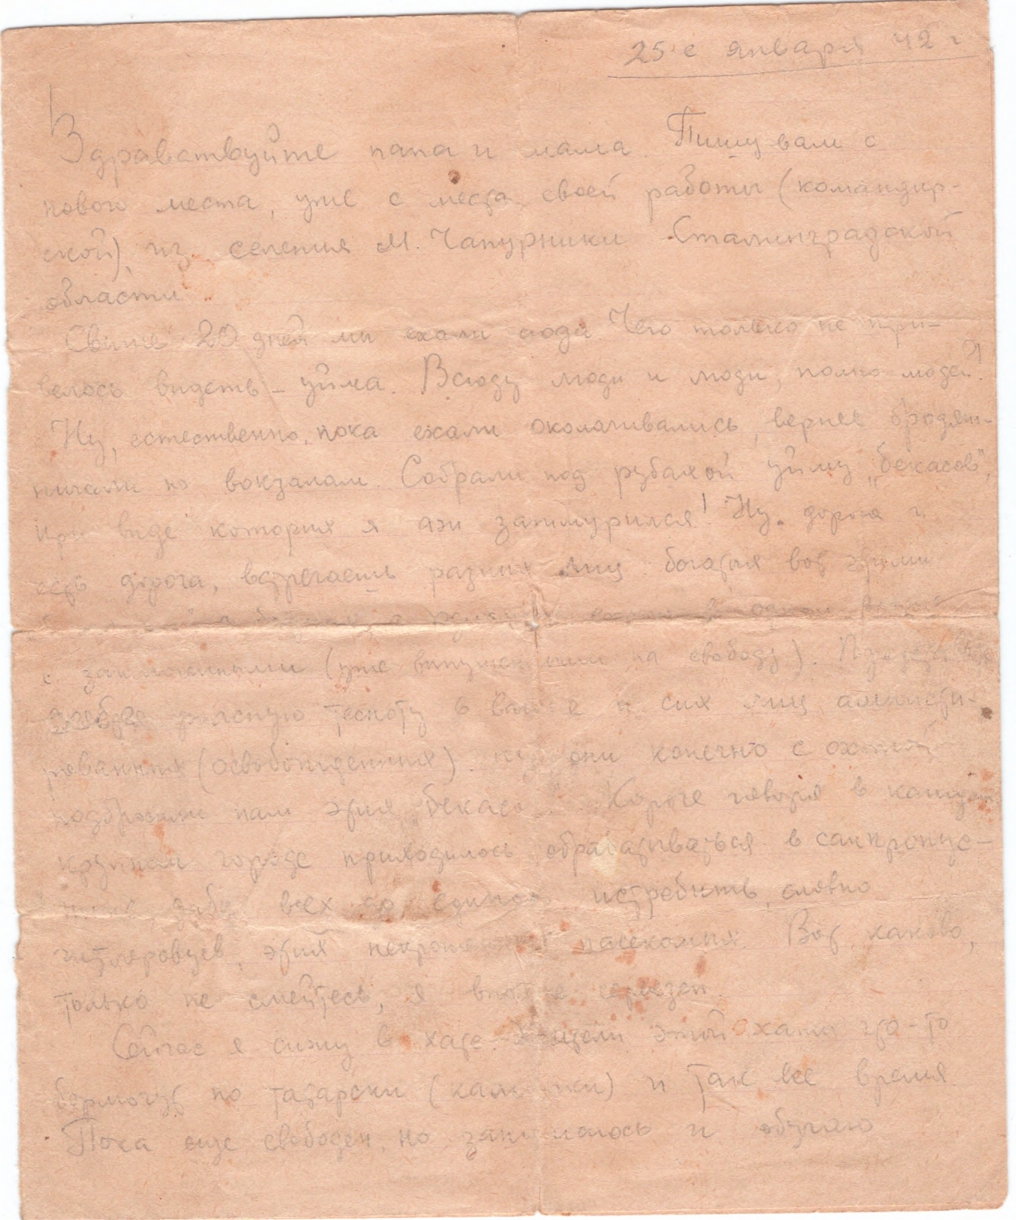 25е января 42 г
Здравствуйте папа и мама. Пишу вам с
нового места, уже с места своей работы (командир-
ской), из селения М. Чапурники Сталинградской
области.
Свыше 20 дней мы ехали сюда Чего только не при-
велось видеть – уйма. Всюду люди и люди, полно людей!
Ну, естественно, пока ехали околачивались, вернее бродяж-
ничали по вокзалам. Собрали под рубахой уйму "бекасов",
при виде которых я аж зажмурился! Ну. дорога и
есть дорога, встречаешь разных лиц. богатая вот этими
в одном
с заключенными (уже выпущенными на свободу).
ужасную тесноту в и сих лиц амнисти-
рованных (освобожденных). они конечно с охотой
подбросили нам этих бекасов. Короче говоря в каждом
крупном городе приходилось обрабатываться в санпропус-
дабы всех до единого истребить, словно
гитлеровцев, этих насекомых. Вот каково,
только не смейтесь, я вполне серьезен.
Сейчас я сижу в хате. этой хаты что-то
бормочут по татарски () и так все время
Пока еще свободен, но занимаюсь и обучаю